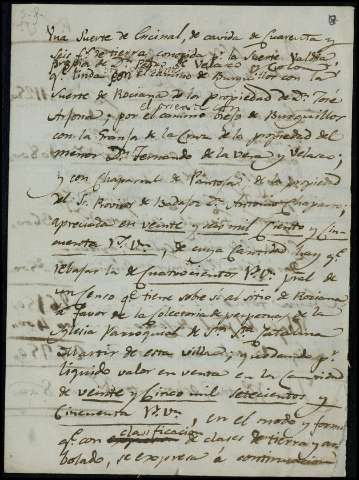 Una Suerte de Encinal, de cavida de Cuarenta y
seis fs. de tierra, conocida pr. la Suerte Valdia
propia de Dn. Pedro de Velasco y
y linda con el camino de Burguillos con la
Suerte de Rociana de la propiedad de Dn. José
Arjona y por el camino viejo de Burguillos
con la Granja de la Cruz de la propiedad del
menor Dn. Fernando de la Vera y Velasco;
y con Chaparral de Pantoja de la propiedad
del Sr. de Badajoz Dn. Antonio Chaparro;
apreciada en veinte y seis mil Ciento y Cin-
cuenta Rs. Vn., de cuya Cantidad hay qe.
rebajar la de Cuatrocientos Rs. Vn. pral. de
un Censo qe. tiene sobre sí al sitio de Rociana
a favor de la Colecturia de perpetuas de la
Iglesia Parroquial de Sta. Sta. Catalina
Martir de esta villa; y quedando pr.
liquido valor en venta en la Cantidad
de veinte y Cinco mil setecientos y
Cincuenta Rs. Vn., en el modo y forma
qe. con clasificación de clases de tierra y ar-
bolado, se expresa à continuacion